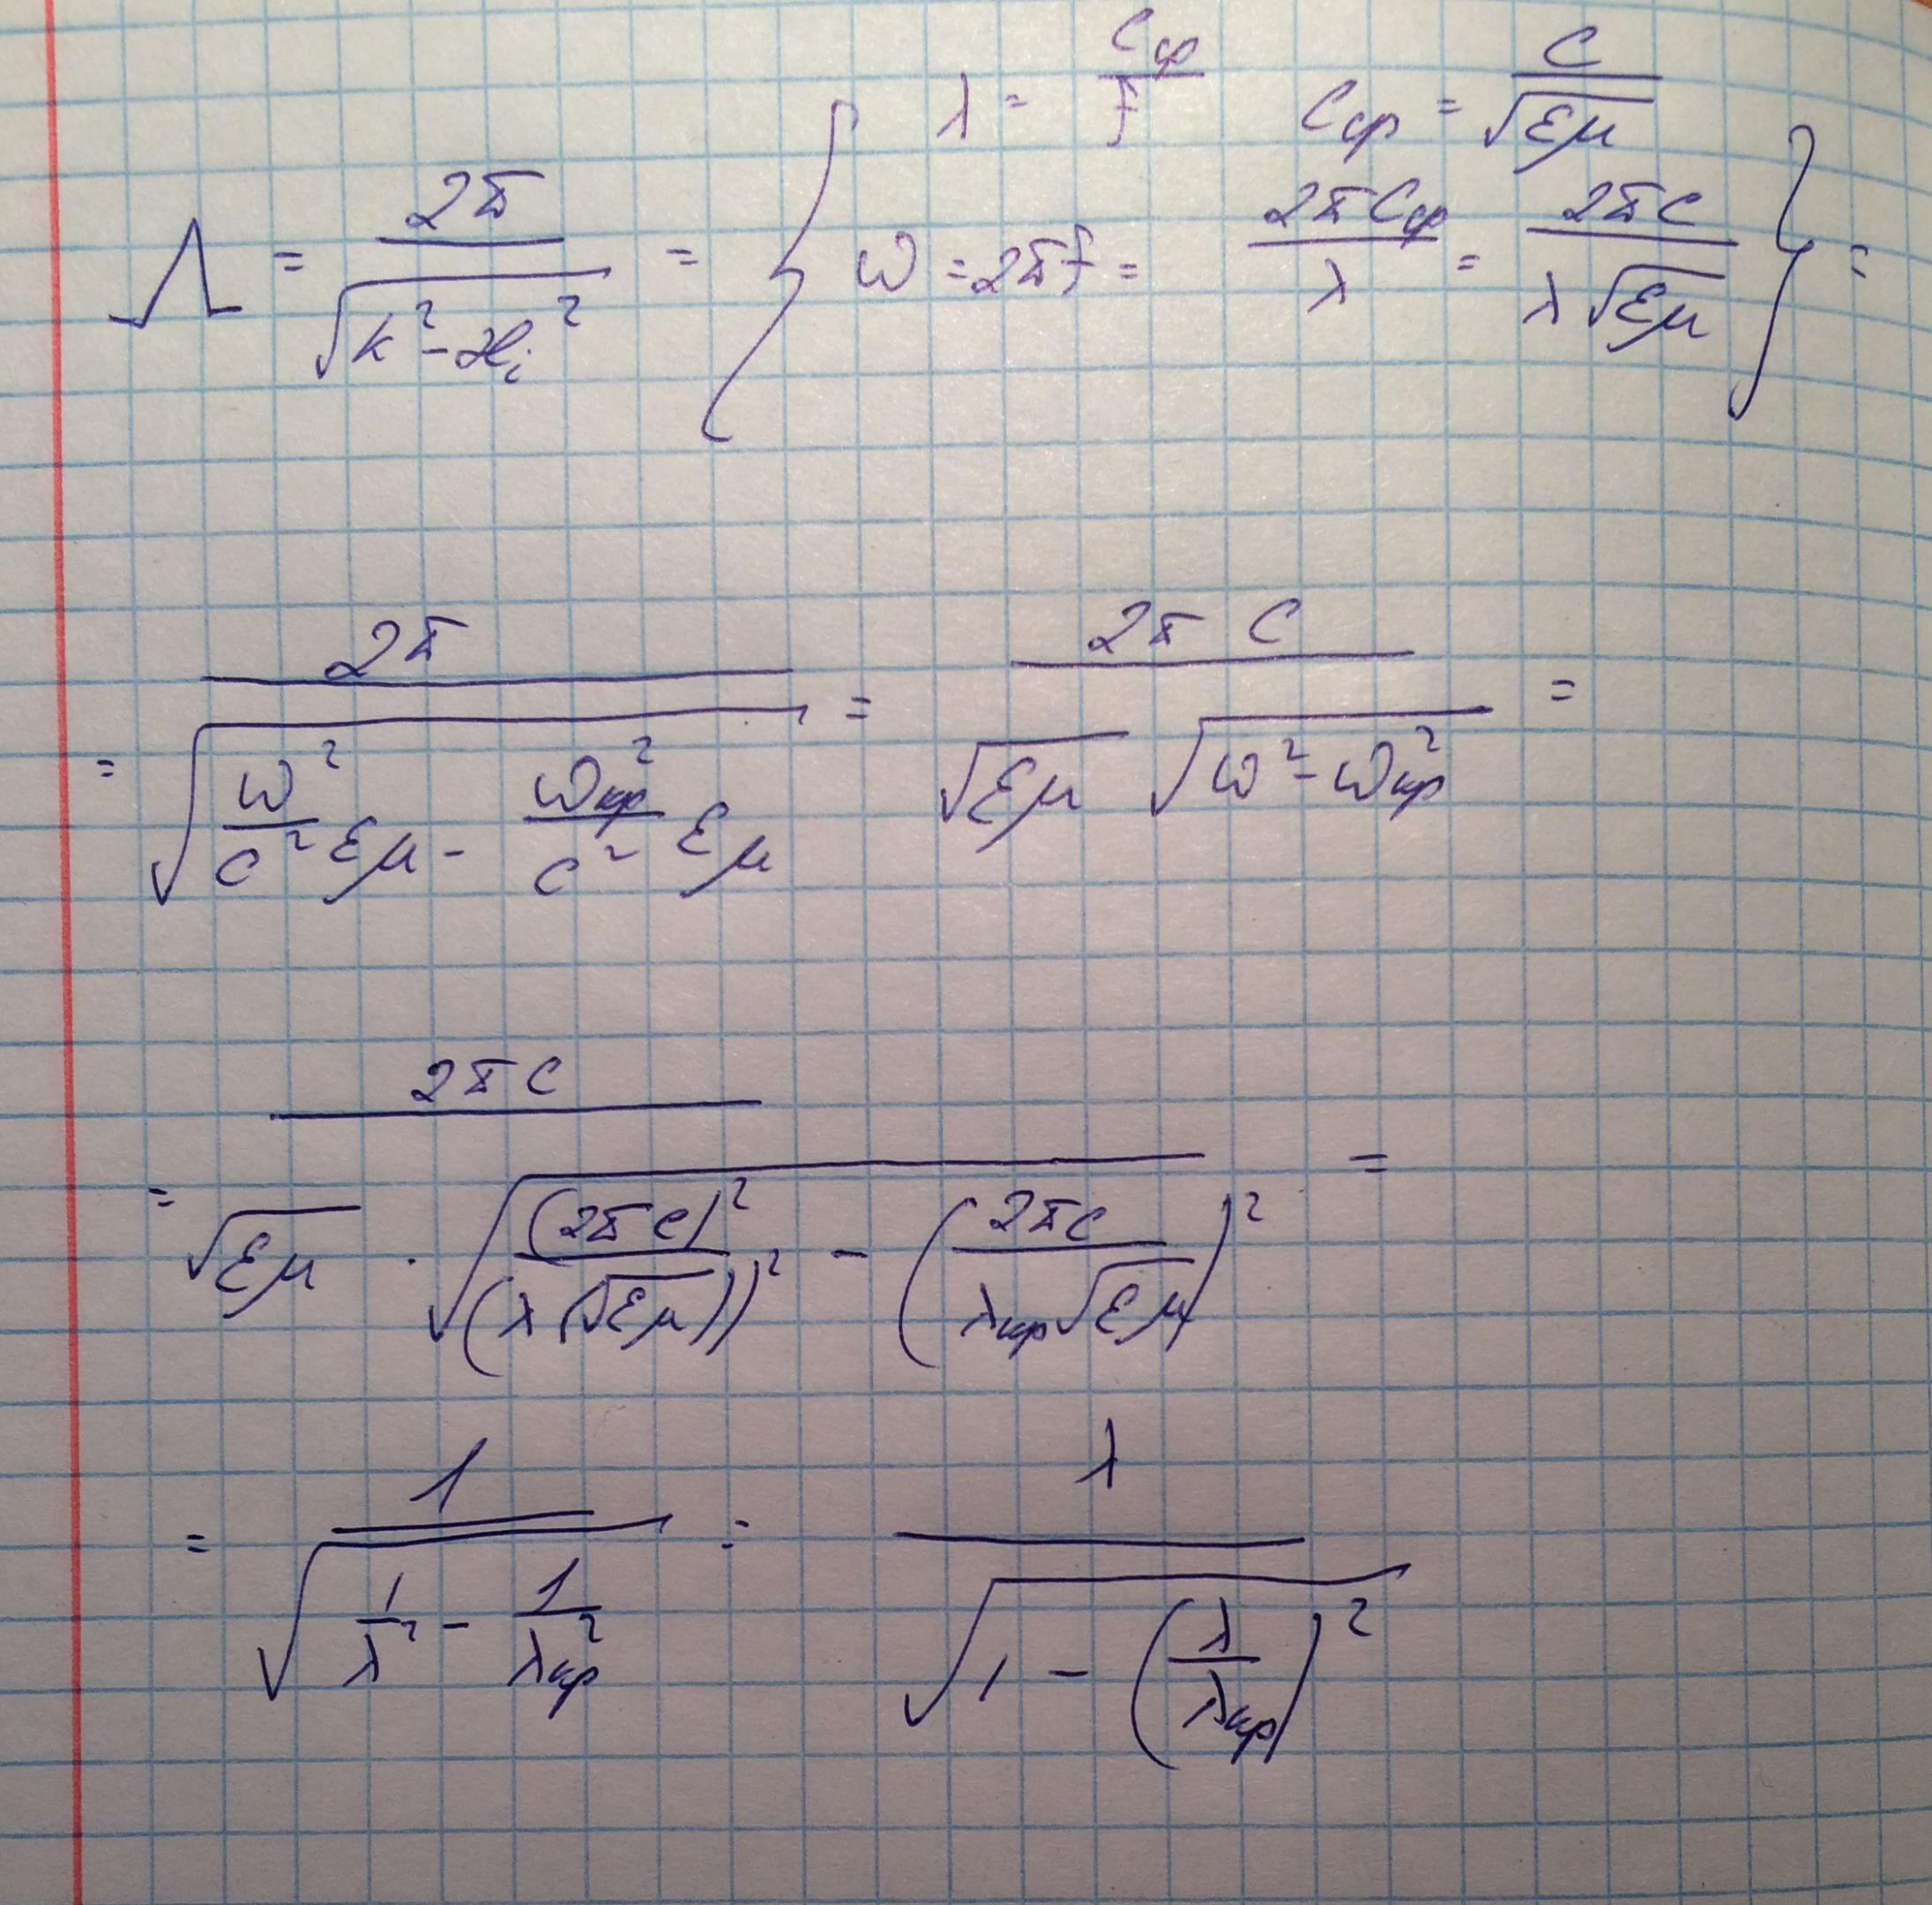 λ = C_ср / f   C_ср = C / √(εμ)
Λ = 2π / √(k² - ℋ_i²) = { ω = 2πf = 2πC_ср / λ = 2πC / (λ√(εμ)) } =
= 2π / √(ω²/c² εμ - ω_кр²/c² εμ) = 2π C / (√(εμ) √(ω² - ω_кр²)) =
= 2πC / (√(εμ) · √((2πC)² / (λ(√(εμ)))² - (2πC / (λ_кр √(εμ)))²)) =
= 1 / √(1/λ² - 1/λ_кр²) = λ / √(1 - (λ/λ_кр)²)